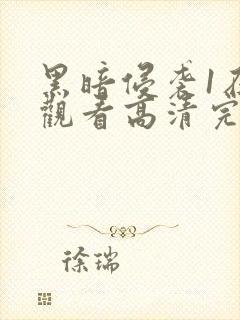 黑暗侵袭1在
觀看高清完
徐瑞